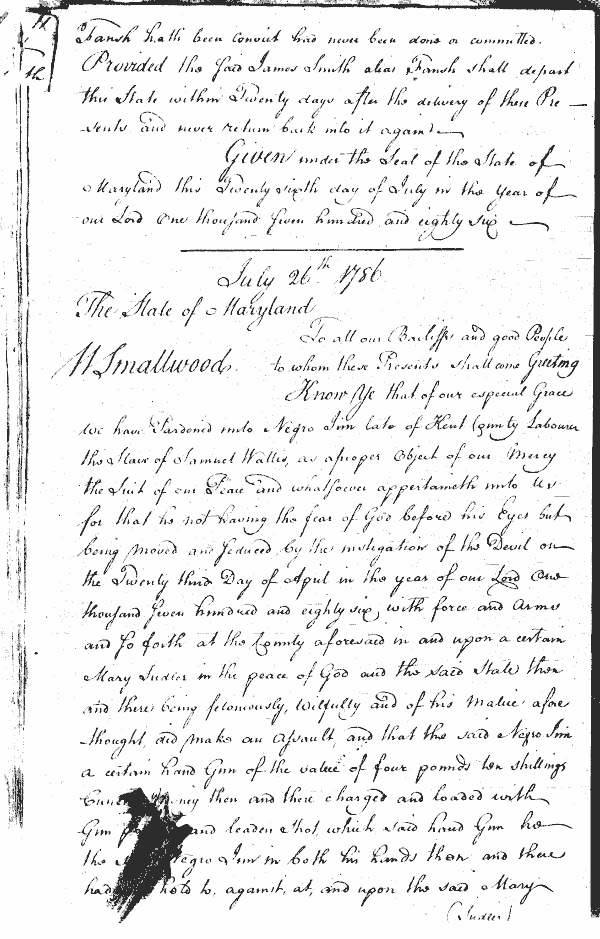 Fansh hath been Convict had never been done or committed.
Provided the said James Smith alias Fansh shall depart
this State within Twenty days after the delivery of these Pre-
sents and never return back into it again.
Given under the Seal of the State of
Maryland this Twenty sixth day of July in the Year of
our Lord One thousand Seven hundred and eighty six
July 26th 1786
The State of Maryland
To all our Bailiffs and good People
W Smallwood. to whom these Presents shall come Greeting
Know Ye that of our especial Grace
we have Pardoned unto Negro Jim late of Kent County Labourer
the Slave of Samuel Wallis, as a proper Object of our Mercy
the Suit of our Peace and whatsoever appertaineth unto Us
for that he not having the fear of God before his Eyes but
being moved and seduced by the instigation of the Devil on
the Twenty third Day of April in the year of our Lord One
thousand Seven hundred and eighty six with force and Arms
and so forth at the County aforesaid in and upon a certain
Mary in the peace of God and the said State then
and there being feloniously, wilfully and of his Malice afore
-thought, did make an Assault, and that the said Negro Jim
a certain hand Gun of the value of four pounds ten shillings
then and there charged and loaded with
Gun and leaden Shot, which said hand Gun he
the Negro Jim in both his hands then and there
had to, against, at, and upon the said Mary